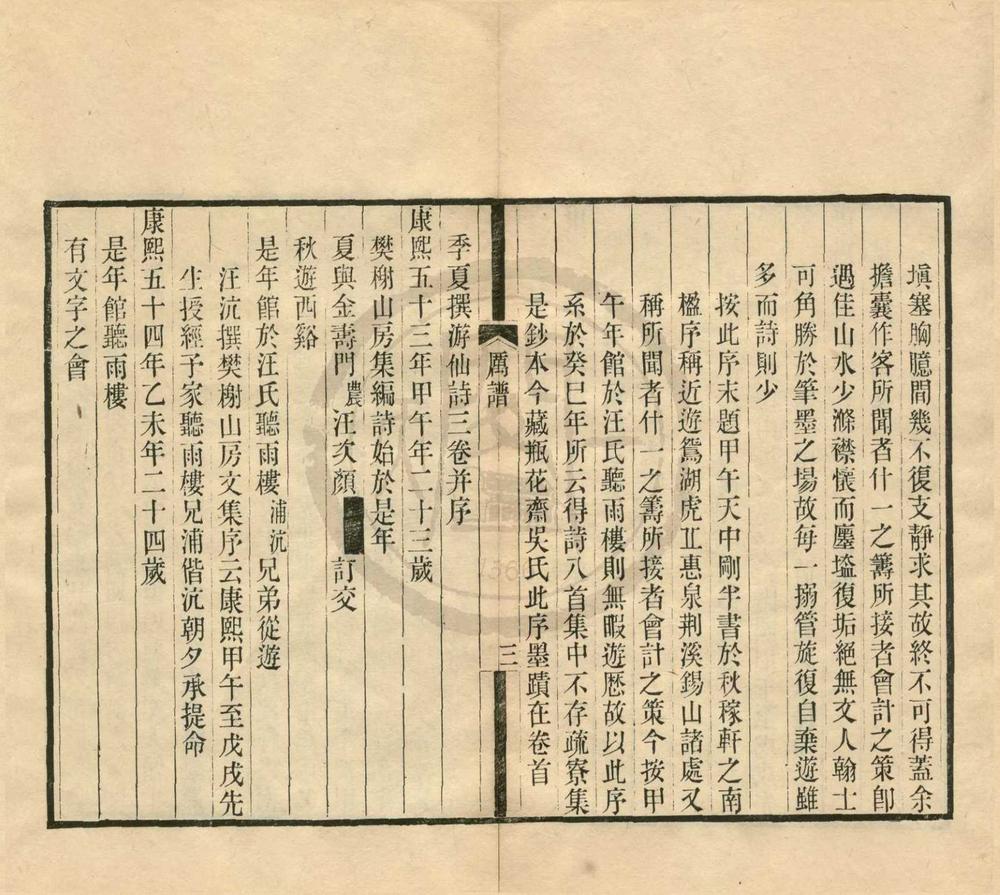 塡塞胸臆間幾不復支靜求其故終不可得蓋余
擔囊作客所聞者什一之籌所接者會計之策卽
遇佳山水少滌襟懷而塵壒復垢絕無文人翰士
可角勝於筆墨之場故每一搦管旋復自棄遊雖
多而詩則少
按此序末題甲午天中剛半書於秋稼軒之南
楹序稱近遊鴛湖虎丠惠泉荆溪錫山諸處又
稱所聞者什一之籌所接者會計之策今按甲
午年館於汪氏聽雨樓則無暇遊歷故以此序
系於癸巳年所云得詩八首集中不存疏寮集
是鈔本今藏瓶花齋吳氏此序墨蹟在卷首
厲譜
三
季夏撰游仙詩三卷幷序
康熙五十三年甲午年二十三歲
樊榭山房集編詩始於是年
夏與金壽門農汪次顏訂交
秋遊西谿
是年館於汪氏聽雨樓浦沆兄弟從遊
汪沆撰樊榭山房文集序云康熙甲午至戊戌先
生授經予家聽雨樓兄浦偕沆朝夕承提命
康熙五十四年乙未年二十四歲
是年館聽雨樓
有文字之會